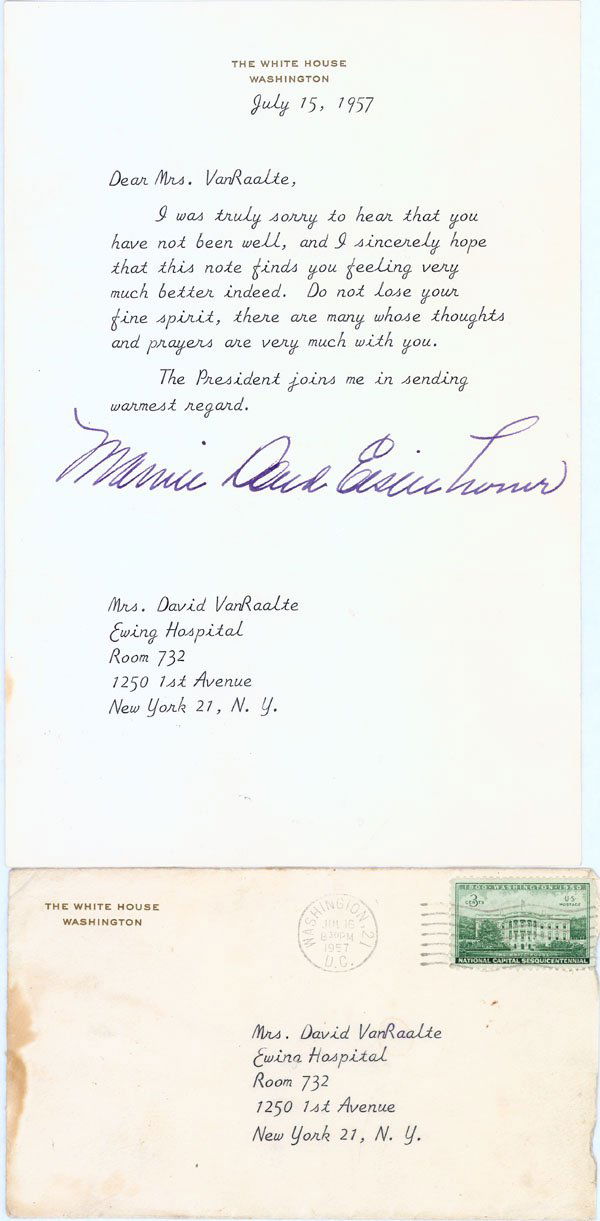 THE WHITE HOUSE
WASHINGTON
July 15, 1957
Dear Mrs. VanRaalte,
I was truly sorry to hear that you
have not been well, and I sincerely hope
that this note finds you feeling very
much better indeed. Do not lose your
fine spirit, there are many whose thoughts
and prayers are very much with you.
The President joins me in sending
warmest regard.
Mamie Doud Eisenhower
Mrs. David VanRaalte
Ewing Hospital
Room 732
1250 1st Avenue
New York 21, N. Y.
THE WHITE HOUSE
WASHINGTON
WASHINGTON 21
JUL 16
8 30 PM
1957
D.C.
1800 · WASHINGTON · 1950
3 CENTS
U.S. POSTAGE
THE WHITE HOUSE
NATIONAL CAPITAL SESQUICENTENNIAL
Mrs. David VanRaalte
Ewing Hospital
Room 732
1250 1st Avenue
New York 21, N. Y.